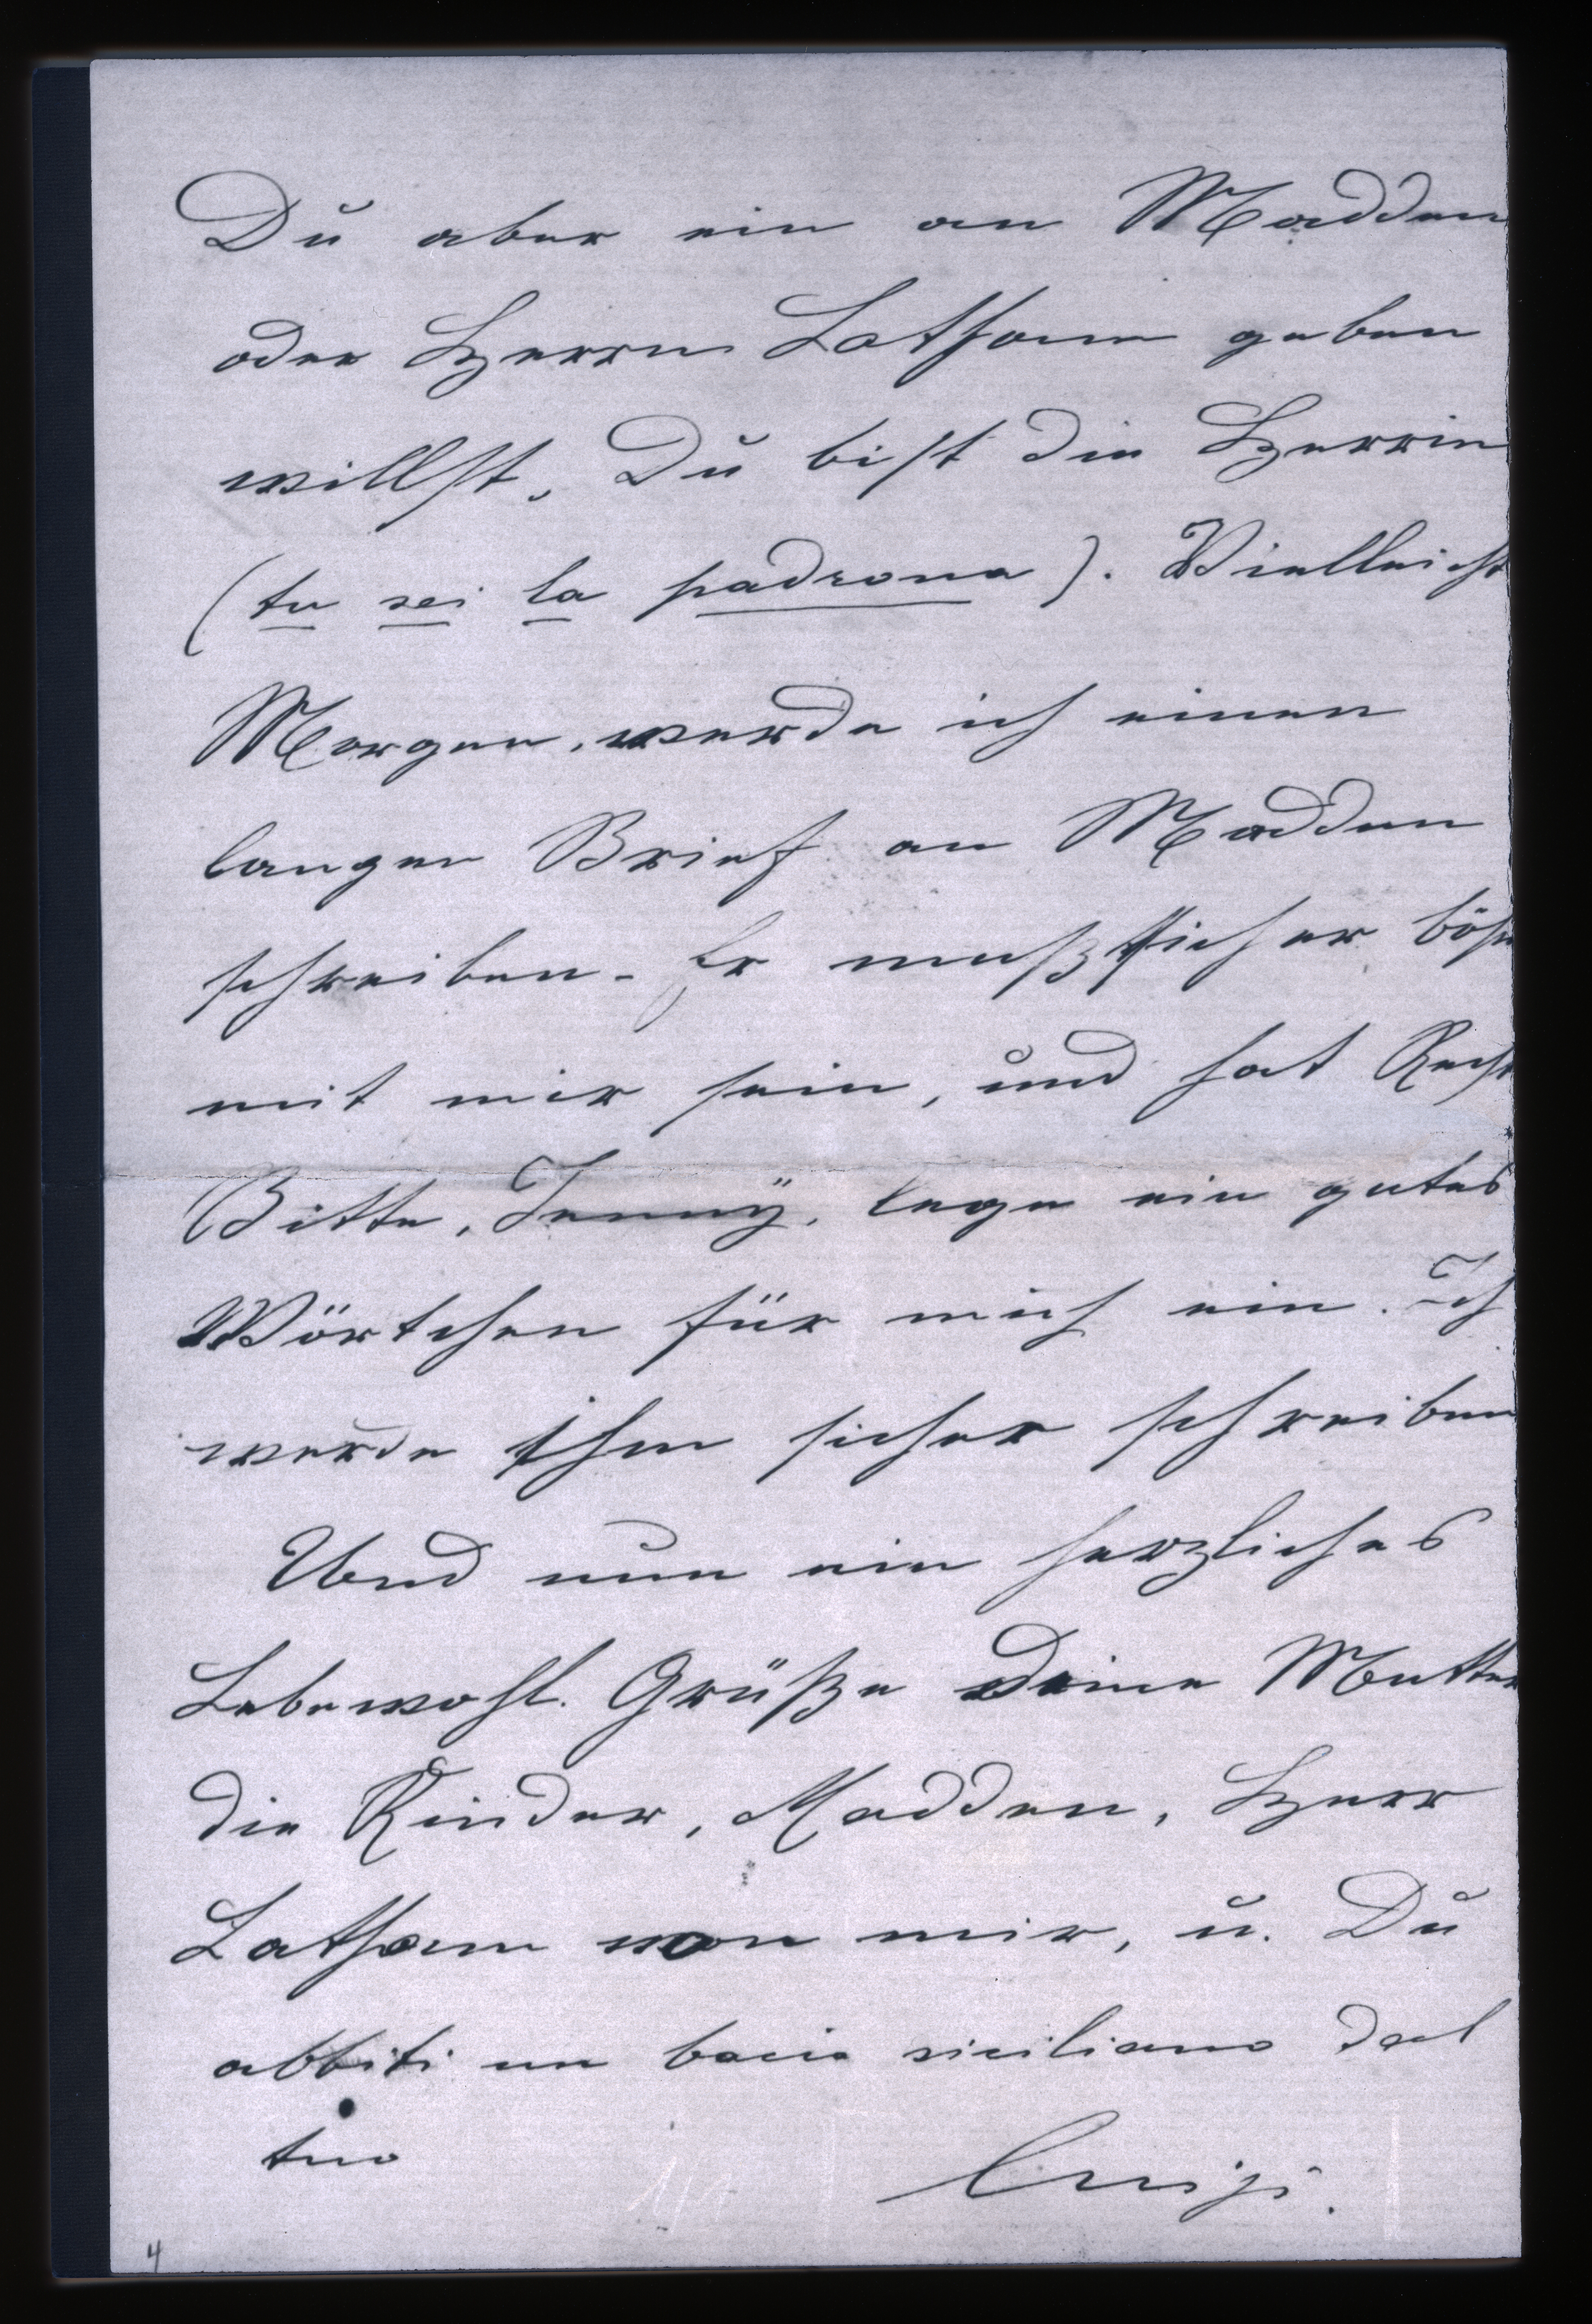 Du aber ein an Madden
oder Herrn Latham geben
willst, Du bist die Herrin
(tu sei la padrona). Vielleicht
Morgen, werde ich einen
langen Brief an Madden
schreiben. Er muß sicher böse
mit mir sein, und hat Recht
Bitte, Jenny, lege ein gutes
Wörtchen für mich ein. Ich
werde ihm sicher schreiben
Und nun ein herzliches
Lebewohl. Grüße Deine Mutter
die Kinder, Madden, Herr
Latham von mir, u. Du
abbiti un bacio siciliano dal
tuo Luigi.
4